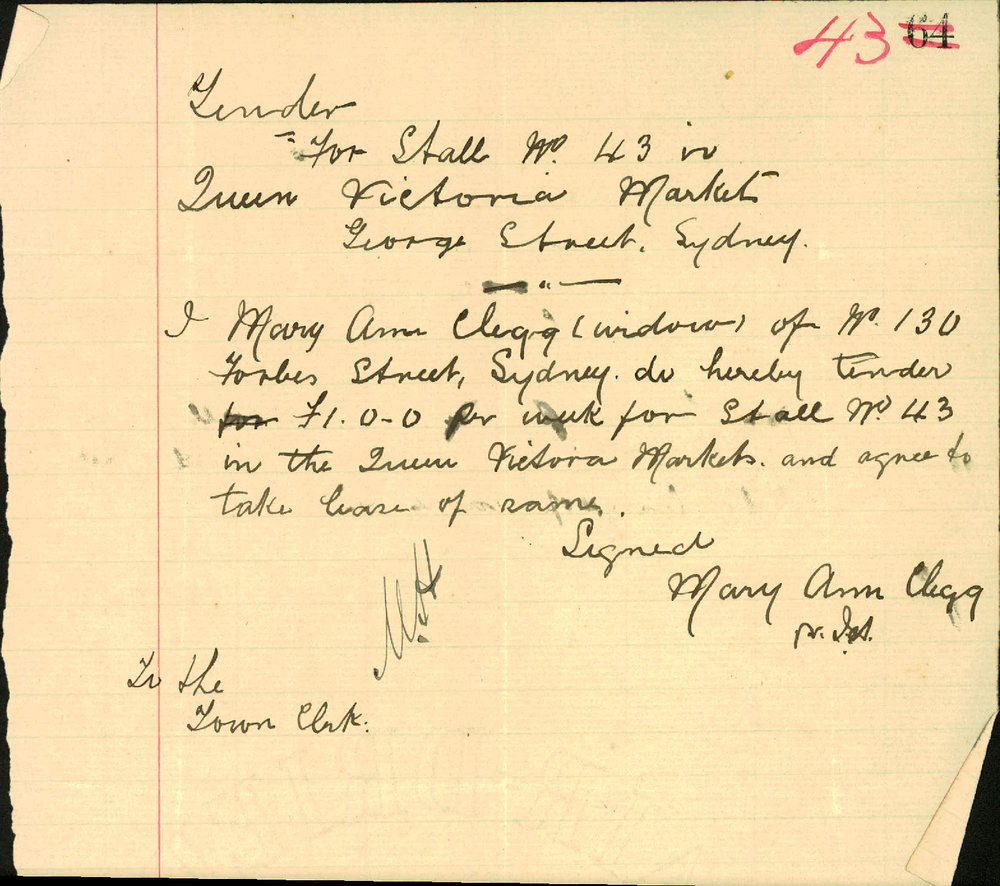 43 64
Tender
For Stall No. 43 in
Queen Victoria Markets
George Street, Sydney.
I Mary Ann Clegg (widow) of No. 130
Forbes Street, Sydney. do hereby tender
for £1.0-0 per week for Stall No 43
in the Queen Victoria Markets. and agree to
take lease of same.
Signed
Mary Ann Clegg
To the
Town Clerk.